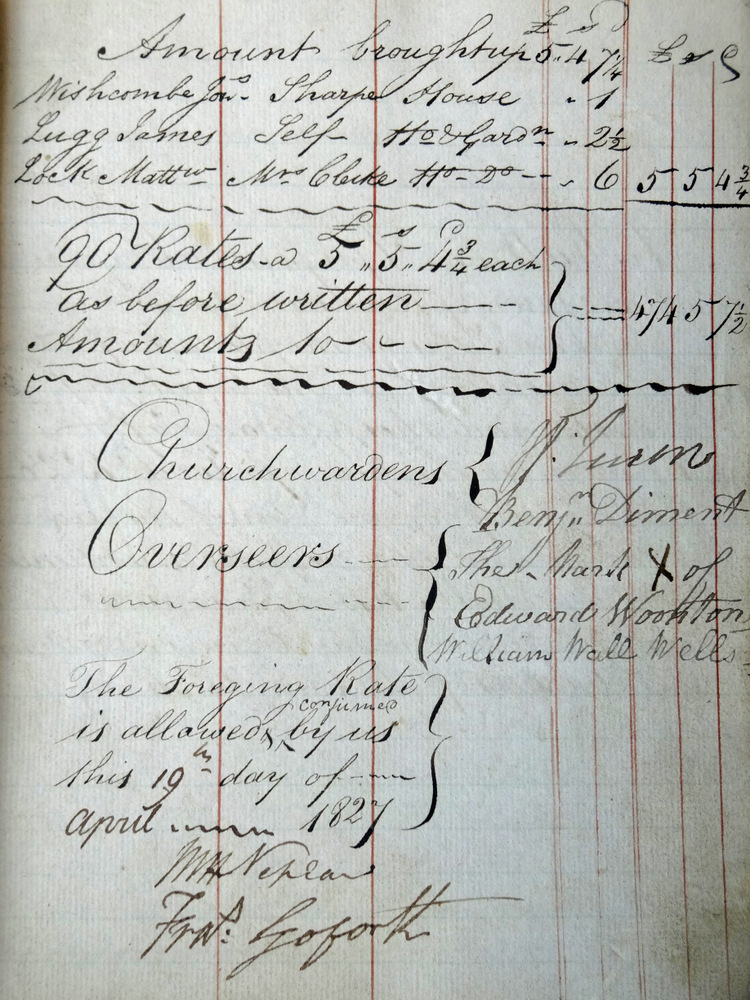 £ s d
Amount brought up 5 .. 4 7¼ £ s d
Wishcombe Jno. Sharpe House " 1
Lugg James Self Ho & Gardn " 2½
Lock Mattw Mrs Ho Do " 6 5 5 4¾
£ s d
90 Rates a 5 " 5 " 4¾ each
as before written 474 5 7½
Amounts to
Churchwardens
Benjn Diment
Overseers The Mark X of
Edward Woonton
William Wall Wells
The Foreging Rate
confirmed
is allowed ^ by us
this 19th day of
April 1827
Fras. Goforth